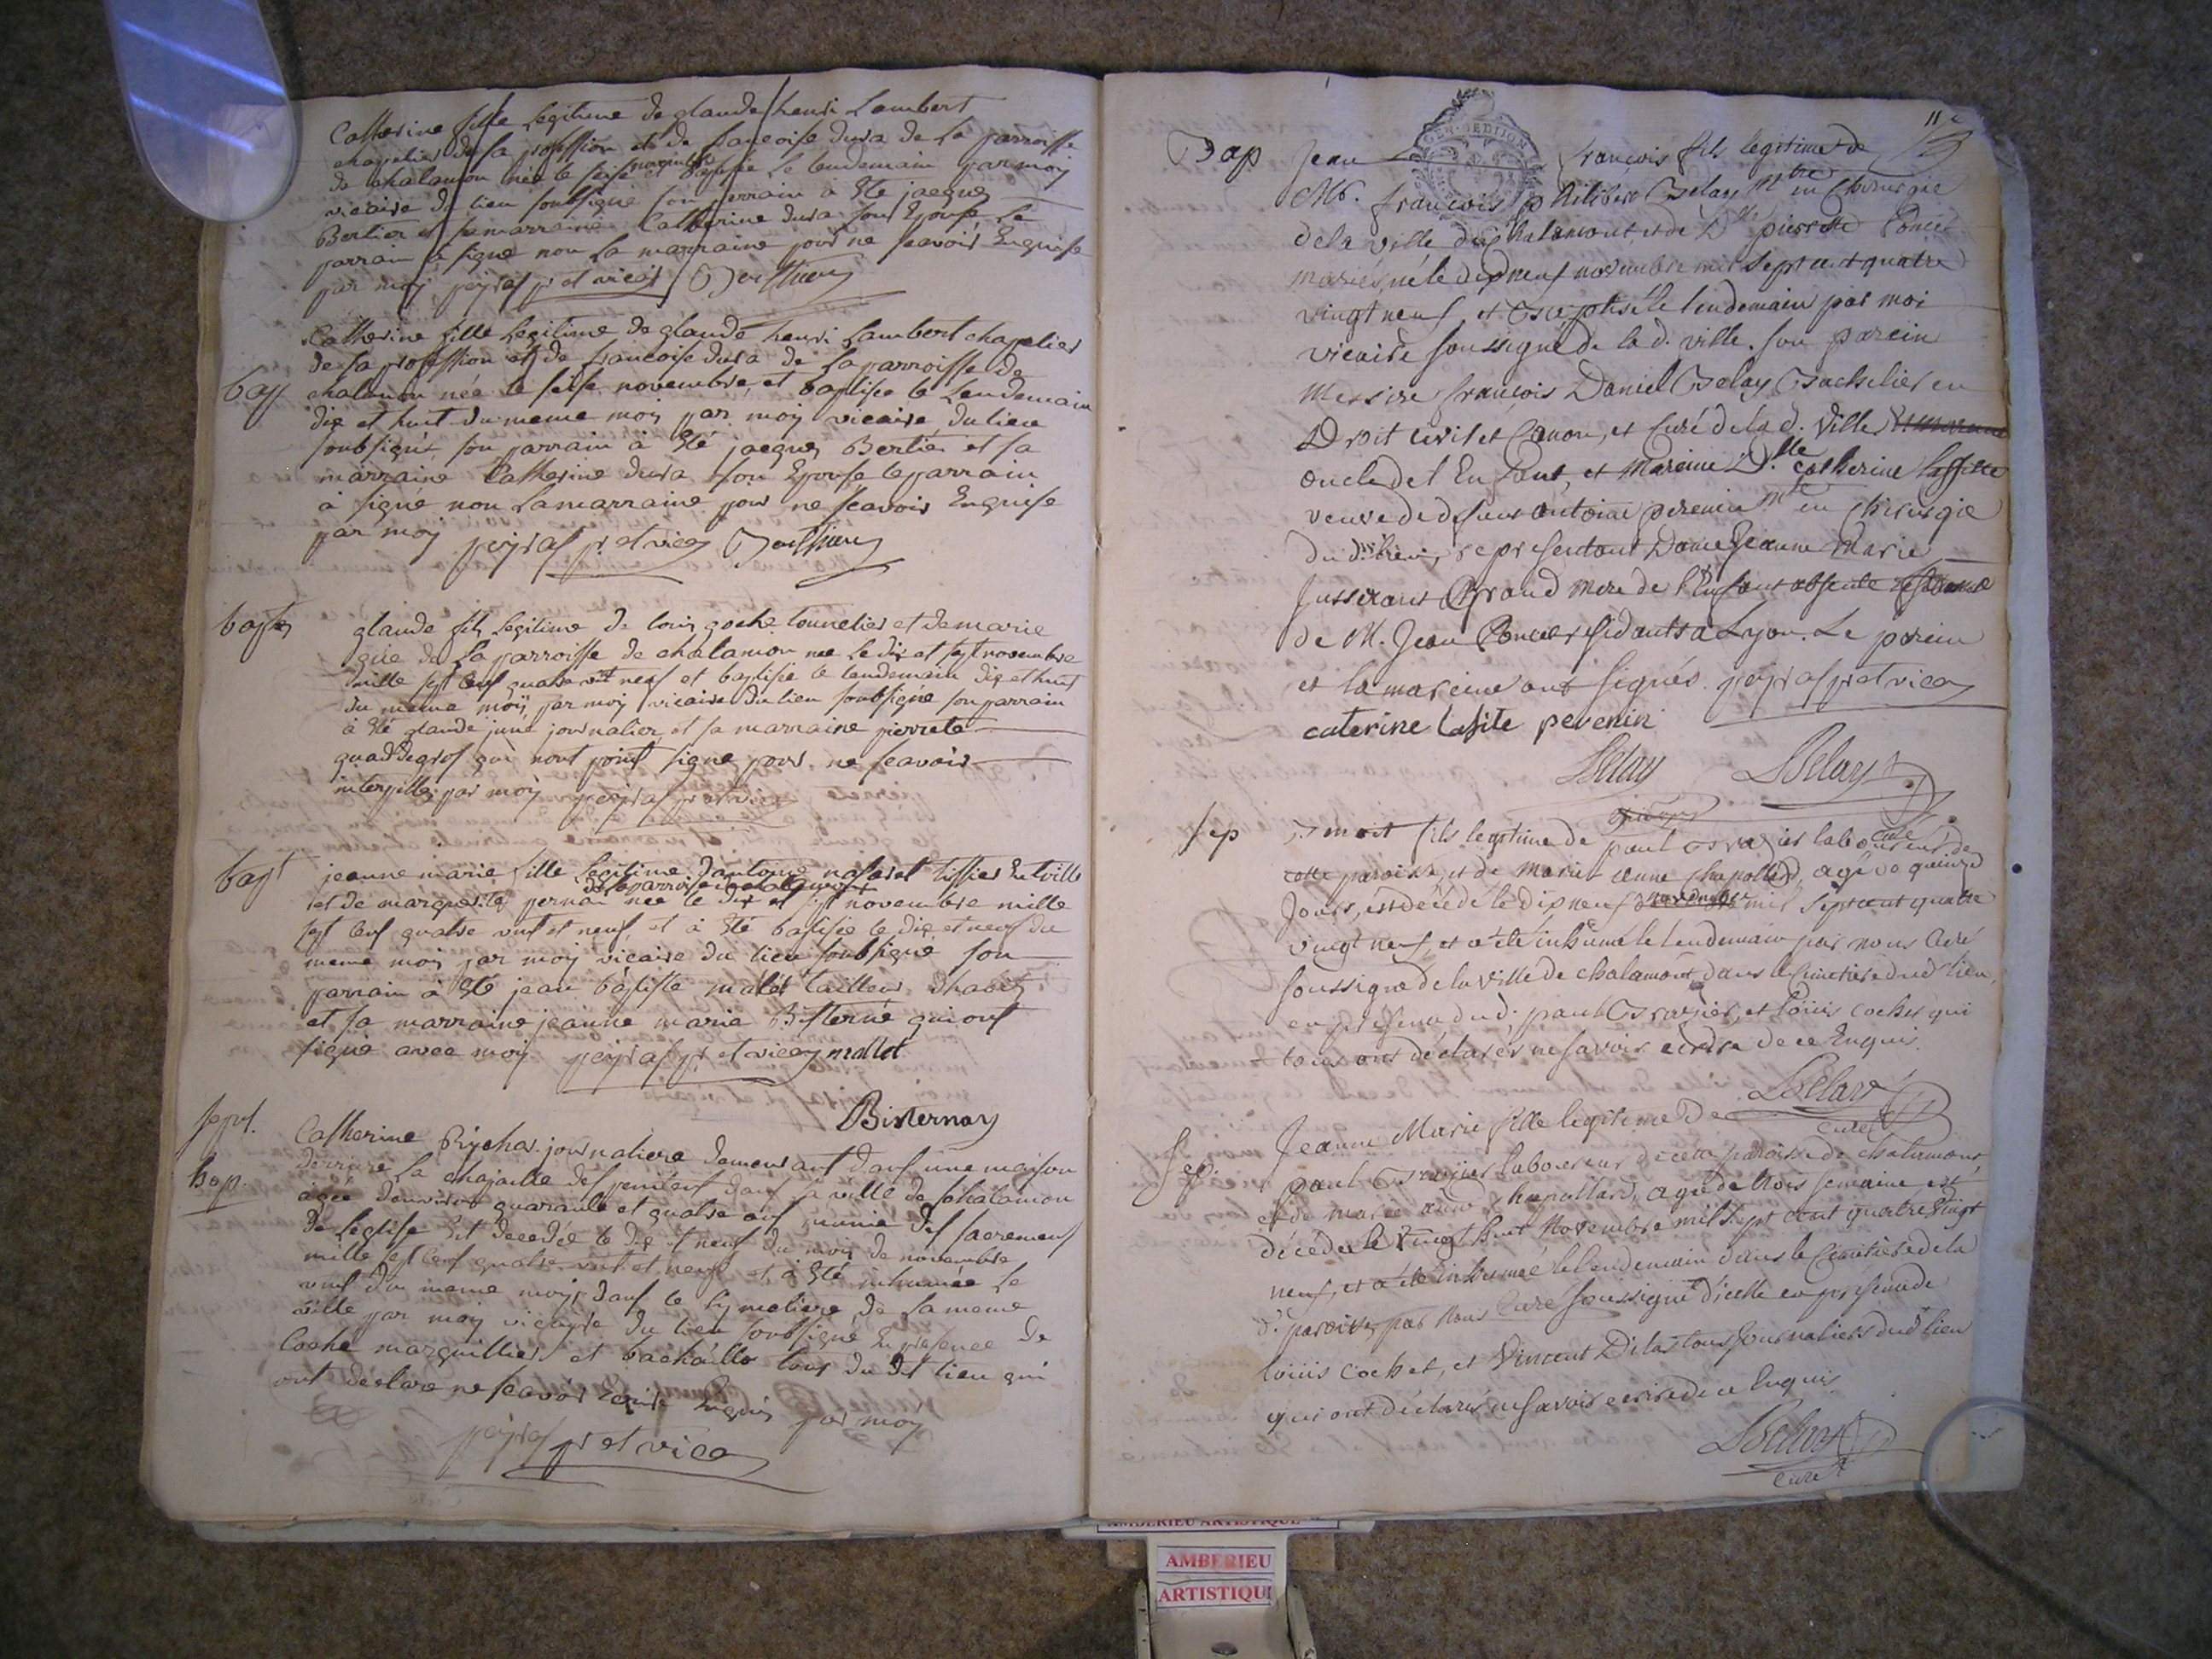 Catherine fille legitime de glaude henri Lambert
chapelier de sa profession et de francoise dura de la parroisse
de chalamon née le seise novembre et baptisée le lendemain par moy
vicaire du lieu soubsigné son parrain à Eté jacque
Bertier et sa marraine Catherine dura son Epouse le
parrain à signé non la marraine pour ne scavoir Enquise
par moy peyras pr et vicas Berthier
Catherine fille legitime de glaude henri Lambert chapelier
de sa profession et de francoise dura de la parroisse de
bap chalamon née le seise novembre, et baptisée le lendemain
dix et huit du meme mois par moy vicaire du lieu
soubsigné son parrain à Eté jacque Bertier et sa
marraine Catherine dura son Epouse le parrain
à signé non la marraine pour ne scavoir Enquise
par moy peyras pr et vicas Berthier
bapt glaude fils legitime de louis goche tonnelier et de marie
de la parroisse de chalamon née le dix et sept novembre
mille sept cens quatre vint neuf et baptisé le lendemain dix et huit
du meme mois par moy vicaire du lieu soubsigné son parrain
à Eté glaude june journalier et sa marraine pierrete
qui nont point signe pour ne scavoir
interpillés par moy peyras pr et vicas
bapt jeanne marie fille legitime dantoine nasaret tissier En ville
de la parroisse de chalamont
et de marguerite pernan née le dix et sept novembre mille
sept cens quatre vint et neuf, et à Eté baptisée le dix et neuf du
meme mois par moy vicaire du lieu soubsigné son
parrain à Eté jean baptiste malet tailleur dhabits
et sa marraine jeanne marie Bisterné qui ont
signé avec moy peyras pr et vicas mallet
Bisternay
sept. Catherine Rychar journaliere demeurant dans une maison
derriere la chapelle des penitens dans la ville de chalamon
bap. âgée denviron quarante et quatre ans munie des sacremens
de leglise Est decedée le dix et neuf du mois de novembre
mille sept cens quatre vint et neuf et à Eté inhumée le
vint du meme mois dans le symetiere de la meme
ville par moy vicayre du lieu soubsigné En presence de
Coche marguillier et bachaille tous du dit lieu qui
ont declare ne scavoir ecrire Enquis par moy
peyras pr et vicas
11e
GEN. DE DIJON
Bap Jean françois fils legitime de
Mr. françois philibert Belay Mtre en Chirurgie
de la ville de Chalamont, et de Dlle pierrette Poncet
mariés, né le dixneuf novembre mil sept cent quatre
vingt neuf, et baptisé le lendemain par moi
vicaire soussigné de la d. ville. son parein
Messire françois Daniel Belay Bachelier en
Droit civil et Canon, et Curé de la d. ville
oncle de l'Enfant, et Mareine Dlle catherine laffitte
veuve de defunt antoine perenin Mtre en Chirurgie
du d. lieu, representant Dame Jeanne Marie
Jusserand Grand mere de l'Enfant absente
de M. Jean Poncet residants à Lyon. Le parein
et la mareine ont signés. peyras pr et vicas
caterine lasite pevenin
Belay LBelay
curé
Sep Benoit fils legitime de paul Gravier laboureur de
cette paroisse, et de Marie anne Chapolard, agé de quinze
Jours, est décédé le dixneuf novembre mil sept cent quatre
vingt neuf, et a été inhumé le lendemain par nous Curé
soussigné de la ville de chalamont dans le Cimetiere du d. lieu,
en presence du d. paul Gravier, et louis cochet qui
tous ont déclarés ne savoir ecrire de ce Enquis.
LBelay
curé
Sep. Jeanne Marie fille legitime de
paul Gravier laboureur de cette paroisse de chalamont,
et de marie anne chapollard, agée de trois semaine est
décédée le vingt huit Novembre mil sept cent quatre vingt
neuf, et a été inhumée le lendemain dans le Cimetiere de la
d. paroisse par nous Curé soussigné d'icelle en presence de
louis cochet, et Vincent Dilas tous Journaliers du d. lieu
qui ont déclarés ne savoir ecrire de ce Enquis
LBelay
curé
AMBERIEU ARTISTIQUE
AMBERIEU
ARTISTIQU